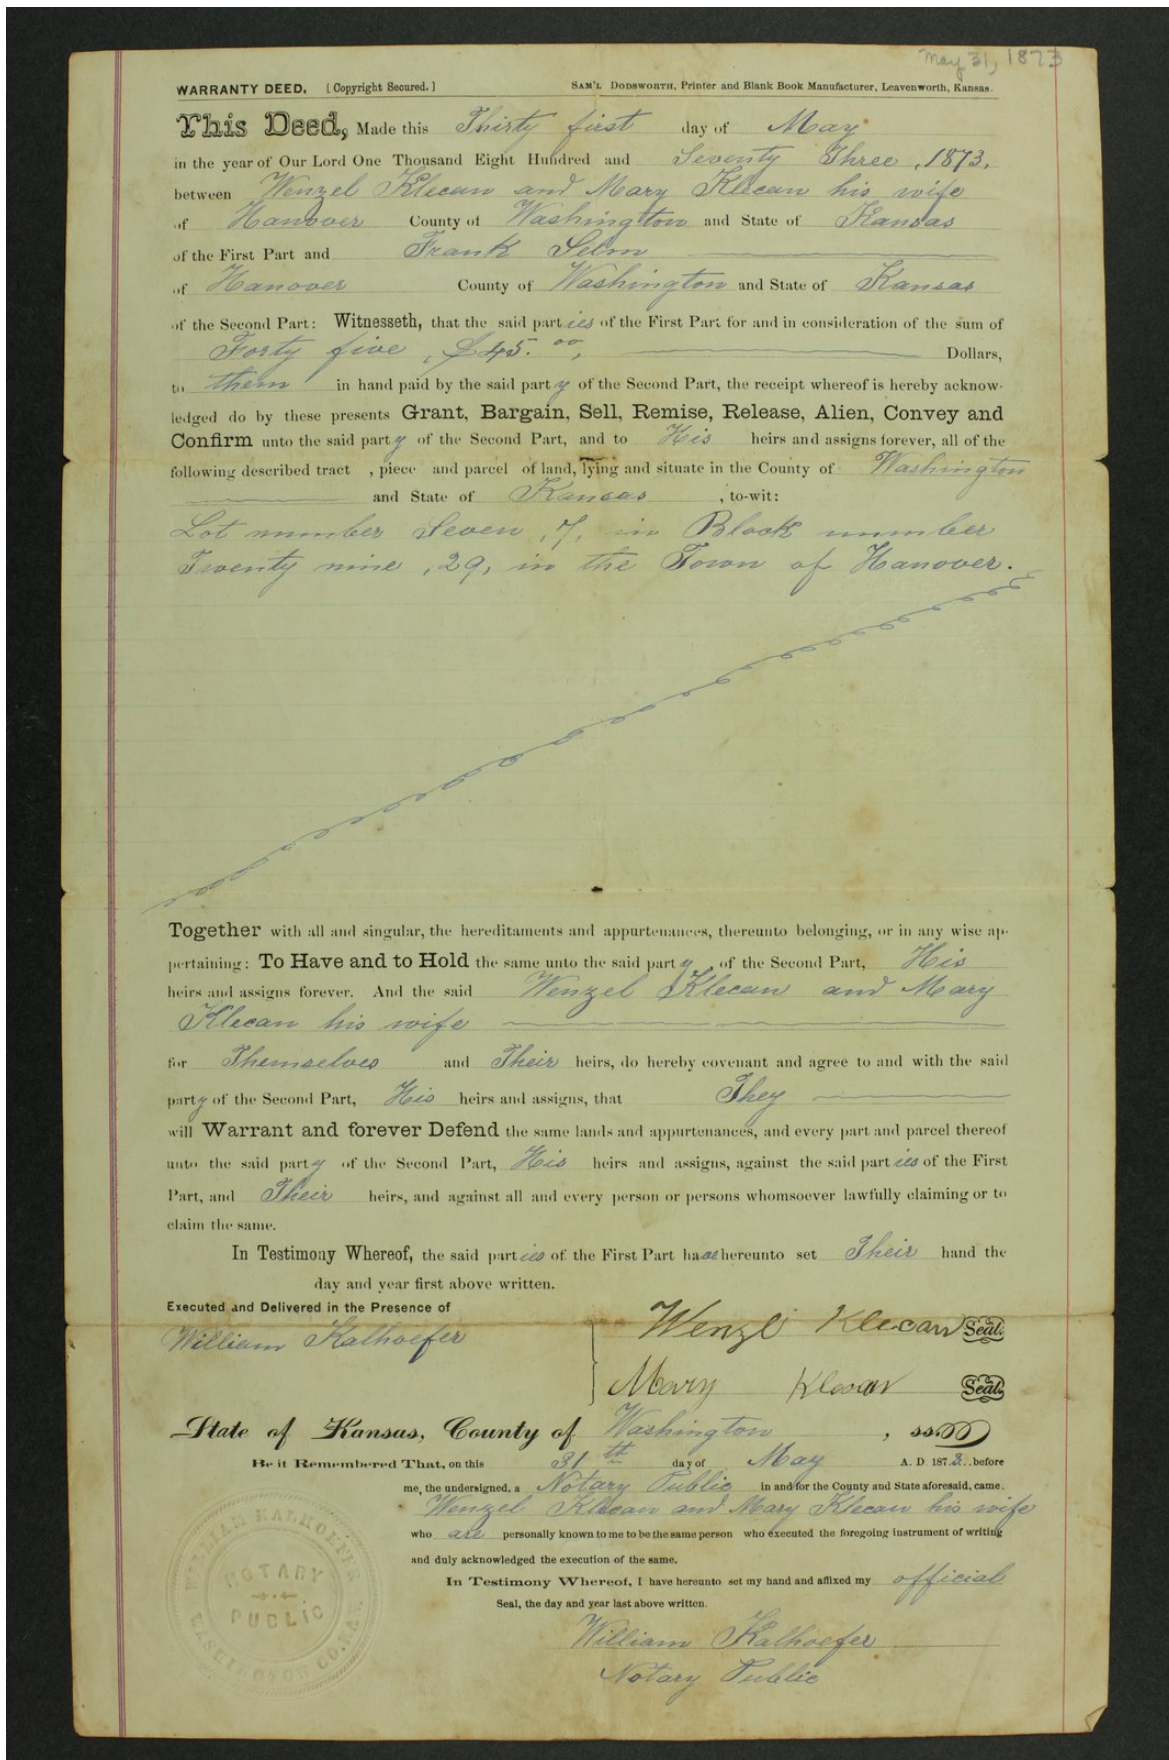 May 31, 1873
WARRANTY DEED. [Copyright Secured.] SAM'L DODSWORTH, Printer and Blank Book Manufacturer, Leavenworth, Kansas.
This Deed, Made this Thirty first day of May
in the year of Our Lord One Thousand Eight Hundred and Seventy Three ,1873,
between Wenzel Klecan and Mary Klecan his wife
of Hanover County of Washington and State of Kansas
of the First Part and Frank Selm
of Hanover County of Washington and State of Kansas
of the Second Part: Witnesseth, that the said parties of the First Part for and in consideration of the sum of
Forty five , $45.00, Dollars,
to them in hand paid by the said party of the Second Part, the receipt whereof is hereby acknow-
ledged do by these presents Grant, Bargain, Sell, Remise, Release, Alien, Convey and
Confirm unto the said party of the Second Part, and to His heirs and assigns forever, all of the
following described tract , piece and parcel of land, lying and situate in the County of Washington
and State of Kansas , to-wit:
Lot number Seven ,7, in Block number
Twenty nine ,29, in the Town of Hanover.
Together with all and singular, the hereditaments and appurtenances, thereunto belonging, or in any wise ap-
pertaining: To Have and to Hold the same unto the said party of the Second Part, His
heirs and assigns forever. And the said Wenzel Klecan and Mary
Klecan his wife
for Themselves and Their heirs, do hereby covenant and agree to and with the said
party of the Second Part, His heirs and assigns, that They
will Warrant and forever Defend the same lands and appurtenances, and every part and parcel thereof
unto the said party of the Second Part, His heirs and assigns, against the said parties of the First
Part, and Their heirs, and against all and every person or persons whomsoever lawfully claiming or to
claim the same.
In Testimony Whereof, the said parties of the First Part have hereunto set Their hand the
day and year first above written.
Executed and Delivered in the Presence of
William Kalhoefer
Wenzl Klecan Seal.
Mary Klecan Seal.
State of Kansas, County of Washington , ss.
Be it Remembered That, on this 31th day of May A. D. 1873. before
me, the undersigned, a Notary Public in and for the County and State aforesaid, came.
Wenzel Klecan and Mary Klecan his wife
who are personally known to me to be the same person who executed the foregoing instrument of writing
and duly acknowledged the execution of the same.
In Testimony Whereof, I have hereunto set my hand and affixed my official
Seal, the day and year last above written.
William Kalhoefer
Notary Public
WILLIAM KALHOEFER
NOTARY
PUBLIC
WASHINGTON CO. KAN.